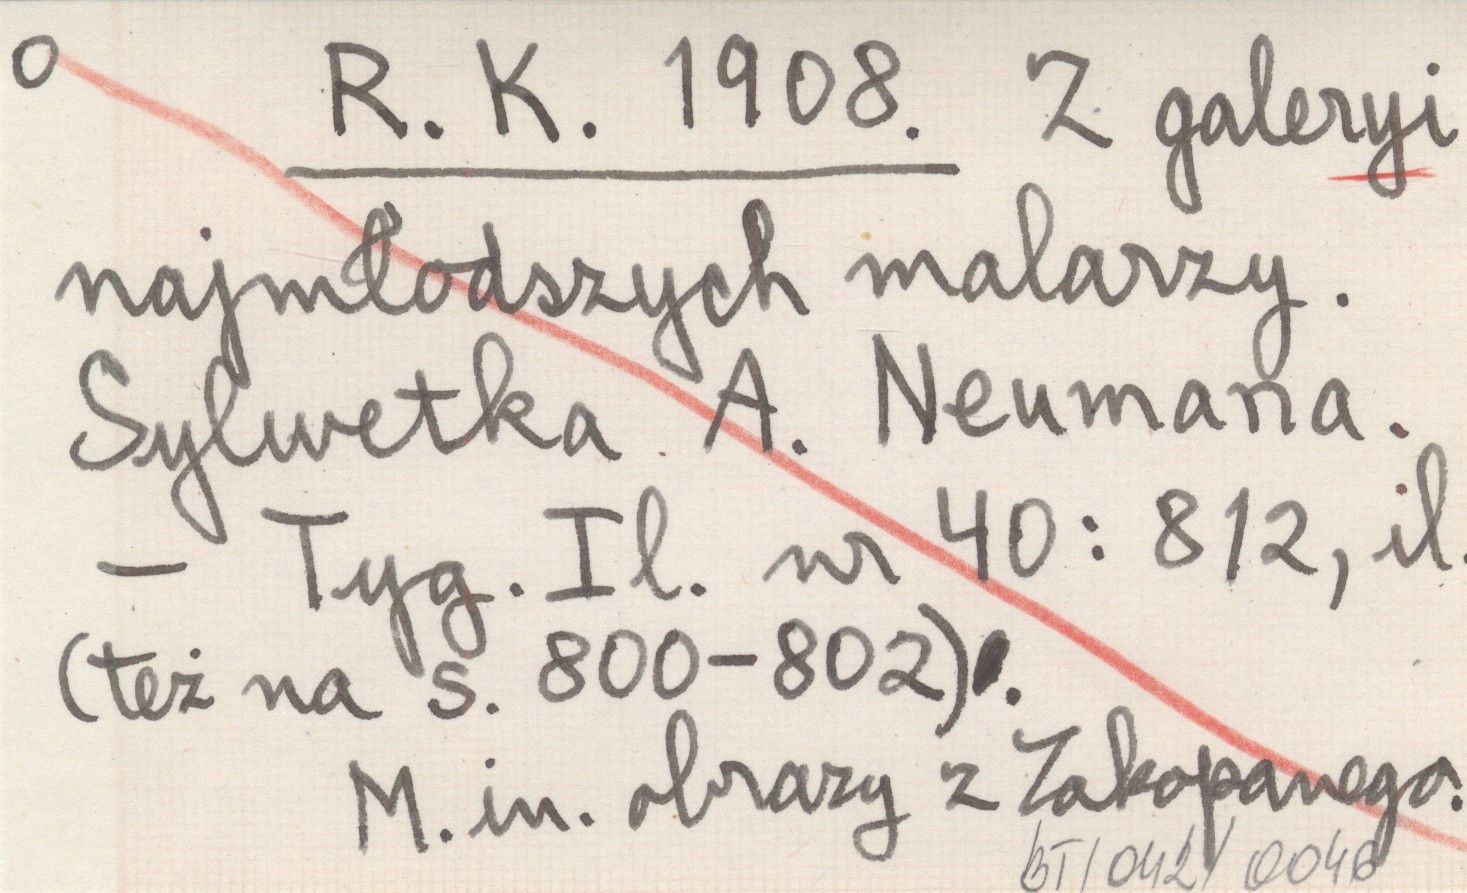 O R. K. 1908. Z galeryi
najmłodszych malarzy.
Sylwetka A. Neumana.
— Tyg. Il. nr 40: 812, il.
(też na s. 800-802).
M. in. obrazy z Zakopanego.
BT/042/0046